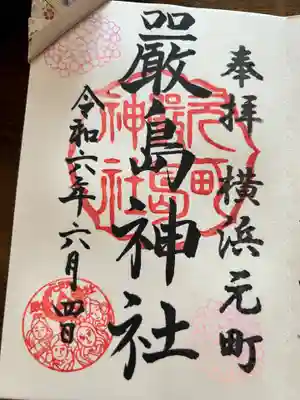 奉拝 横浜元町
嚴島神社
元町
嚴島
神社
令和六年 六月 四日